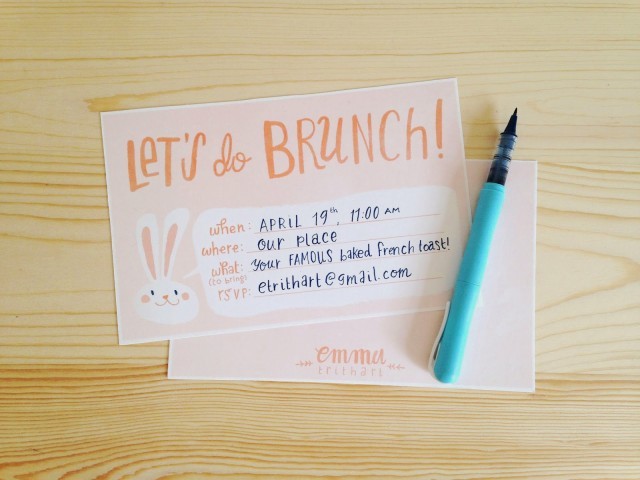 LET'S do BRUNCH!
when: APRIL 19th, 11:00 AM
where: our place
what: your FAMOUS baked french toast!
(to bring)
rsvp: etrithart@gmail.com
emma
trithart